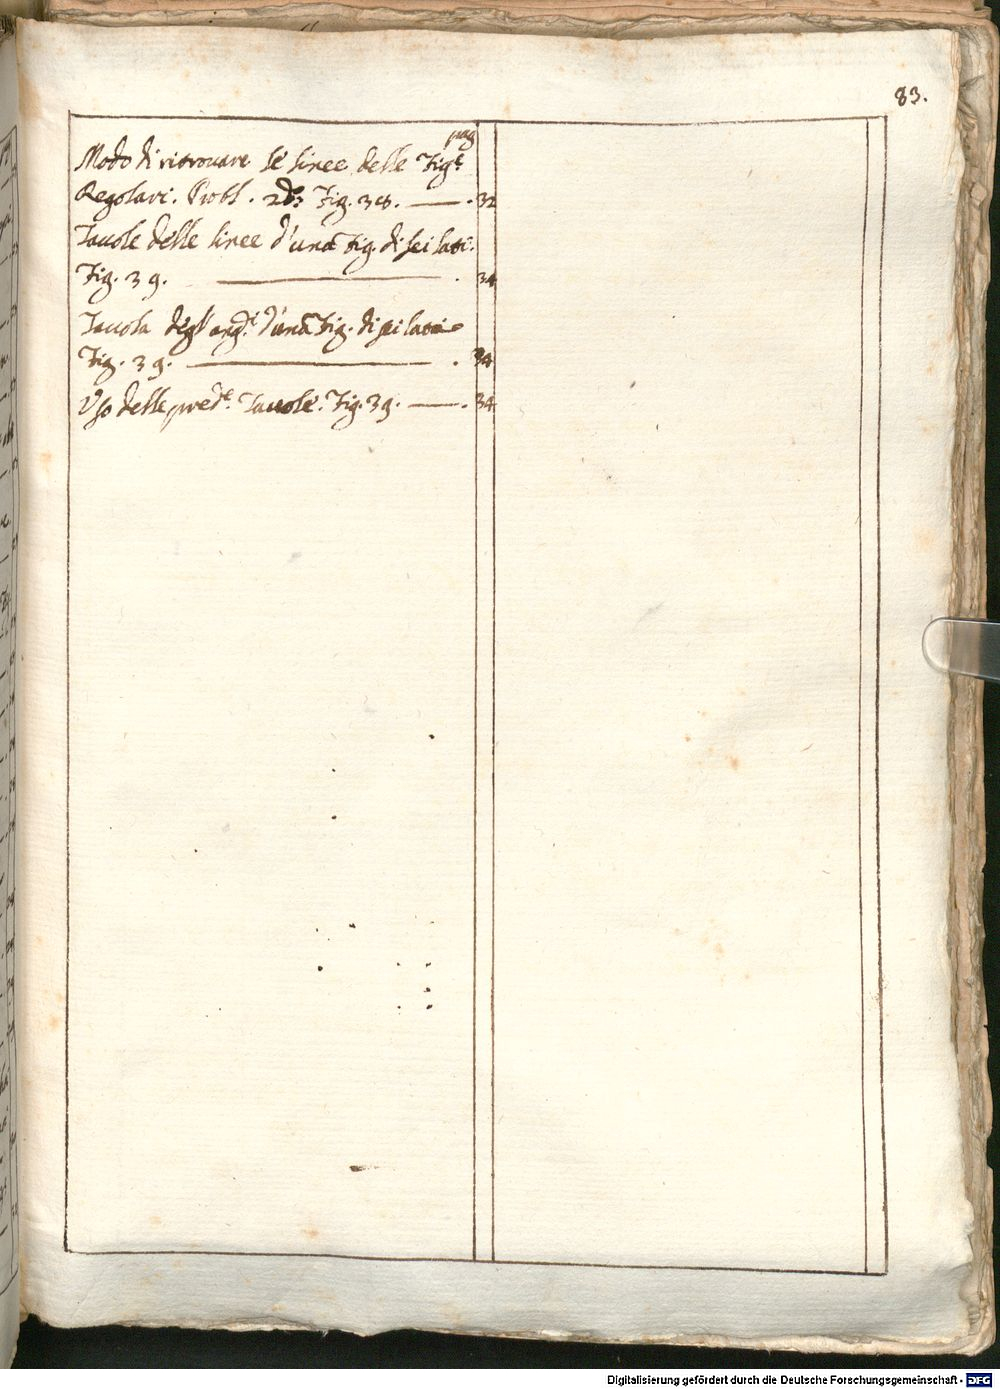 83.
pag
Modo di ritrouare le linee delle Fig.e
Regolari. Probl. 2do: Fig. 38. —— . 32
Tauole delle linee d'una Fig. di sei lati.
Fig. 39. —— . 34
Tauola degl'ang.i d'una Fig. di sei lati
Fig. 39. —— . 34
Vso delle pred.e Tauole. Fig. 39. —— . 34
Digitalisierung gefördert durch die Deutsche Forschungsgemeinschaft - DFG